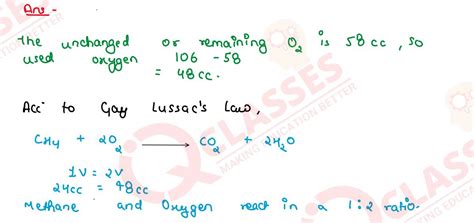 Ans -
The unchanged or remaining O2 is 58 cc, so
used oxygen 106 - 58
= 48 cc.
Acc to Gay Lussac's Law,
CH4 + 2O2 ⟶ CO2 + 2H2O
1V = 2V
24cc = 48cc
Methane and Oxygen react in a 1:2 ratio.
CLASSES
MAKING EDUCATION BETTER
CLASSES
MAKING EDUCATION BETTER